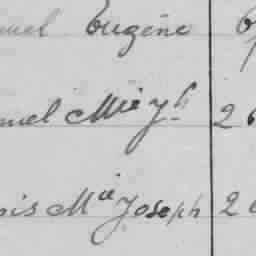 uel Eugène 6
nuel Mie Jh 2
ois Mie Joseph 2